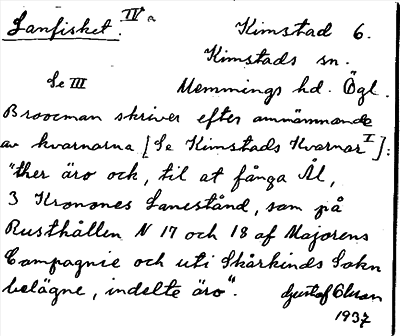 Lanfisket. IV a
Kimstad 6.
Kimstads sn.
Se III
Memmings hd. Ögl.
Broocman skriver efter omnämnande
av kvarnarna [Se Kimstads Kvarnar I]:
"ther äro och, til at fånga Ål,
3 Kronones Lanestånd, som på
Rusthållen N 17 och 18 af Majorens
Compagnie och uti Skärkinds Sokn
belägne, indelte äro".
Gustaf Olsson
1937